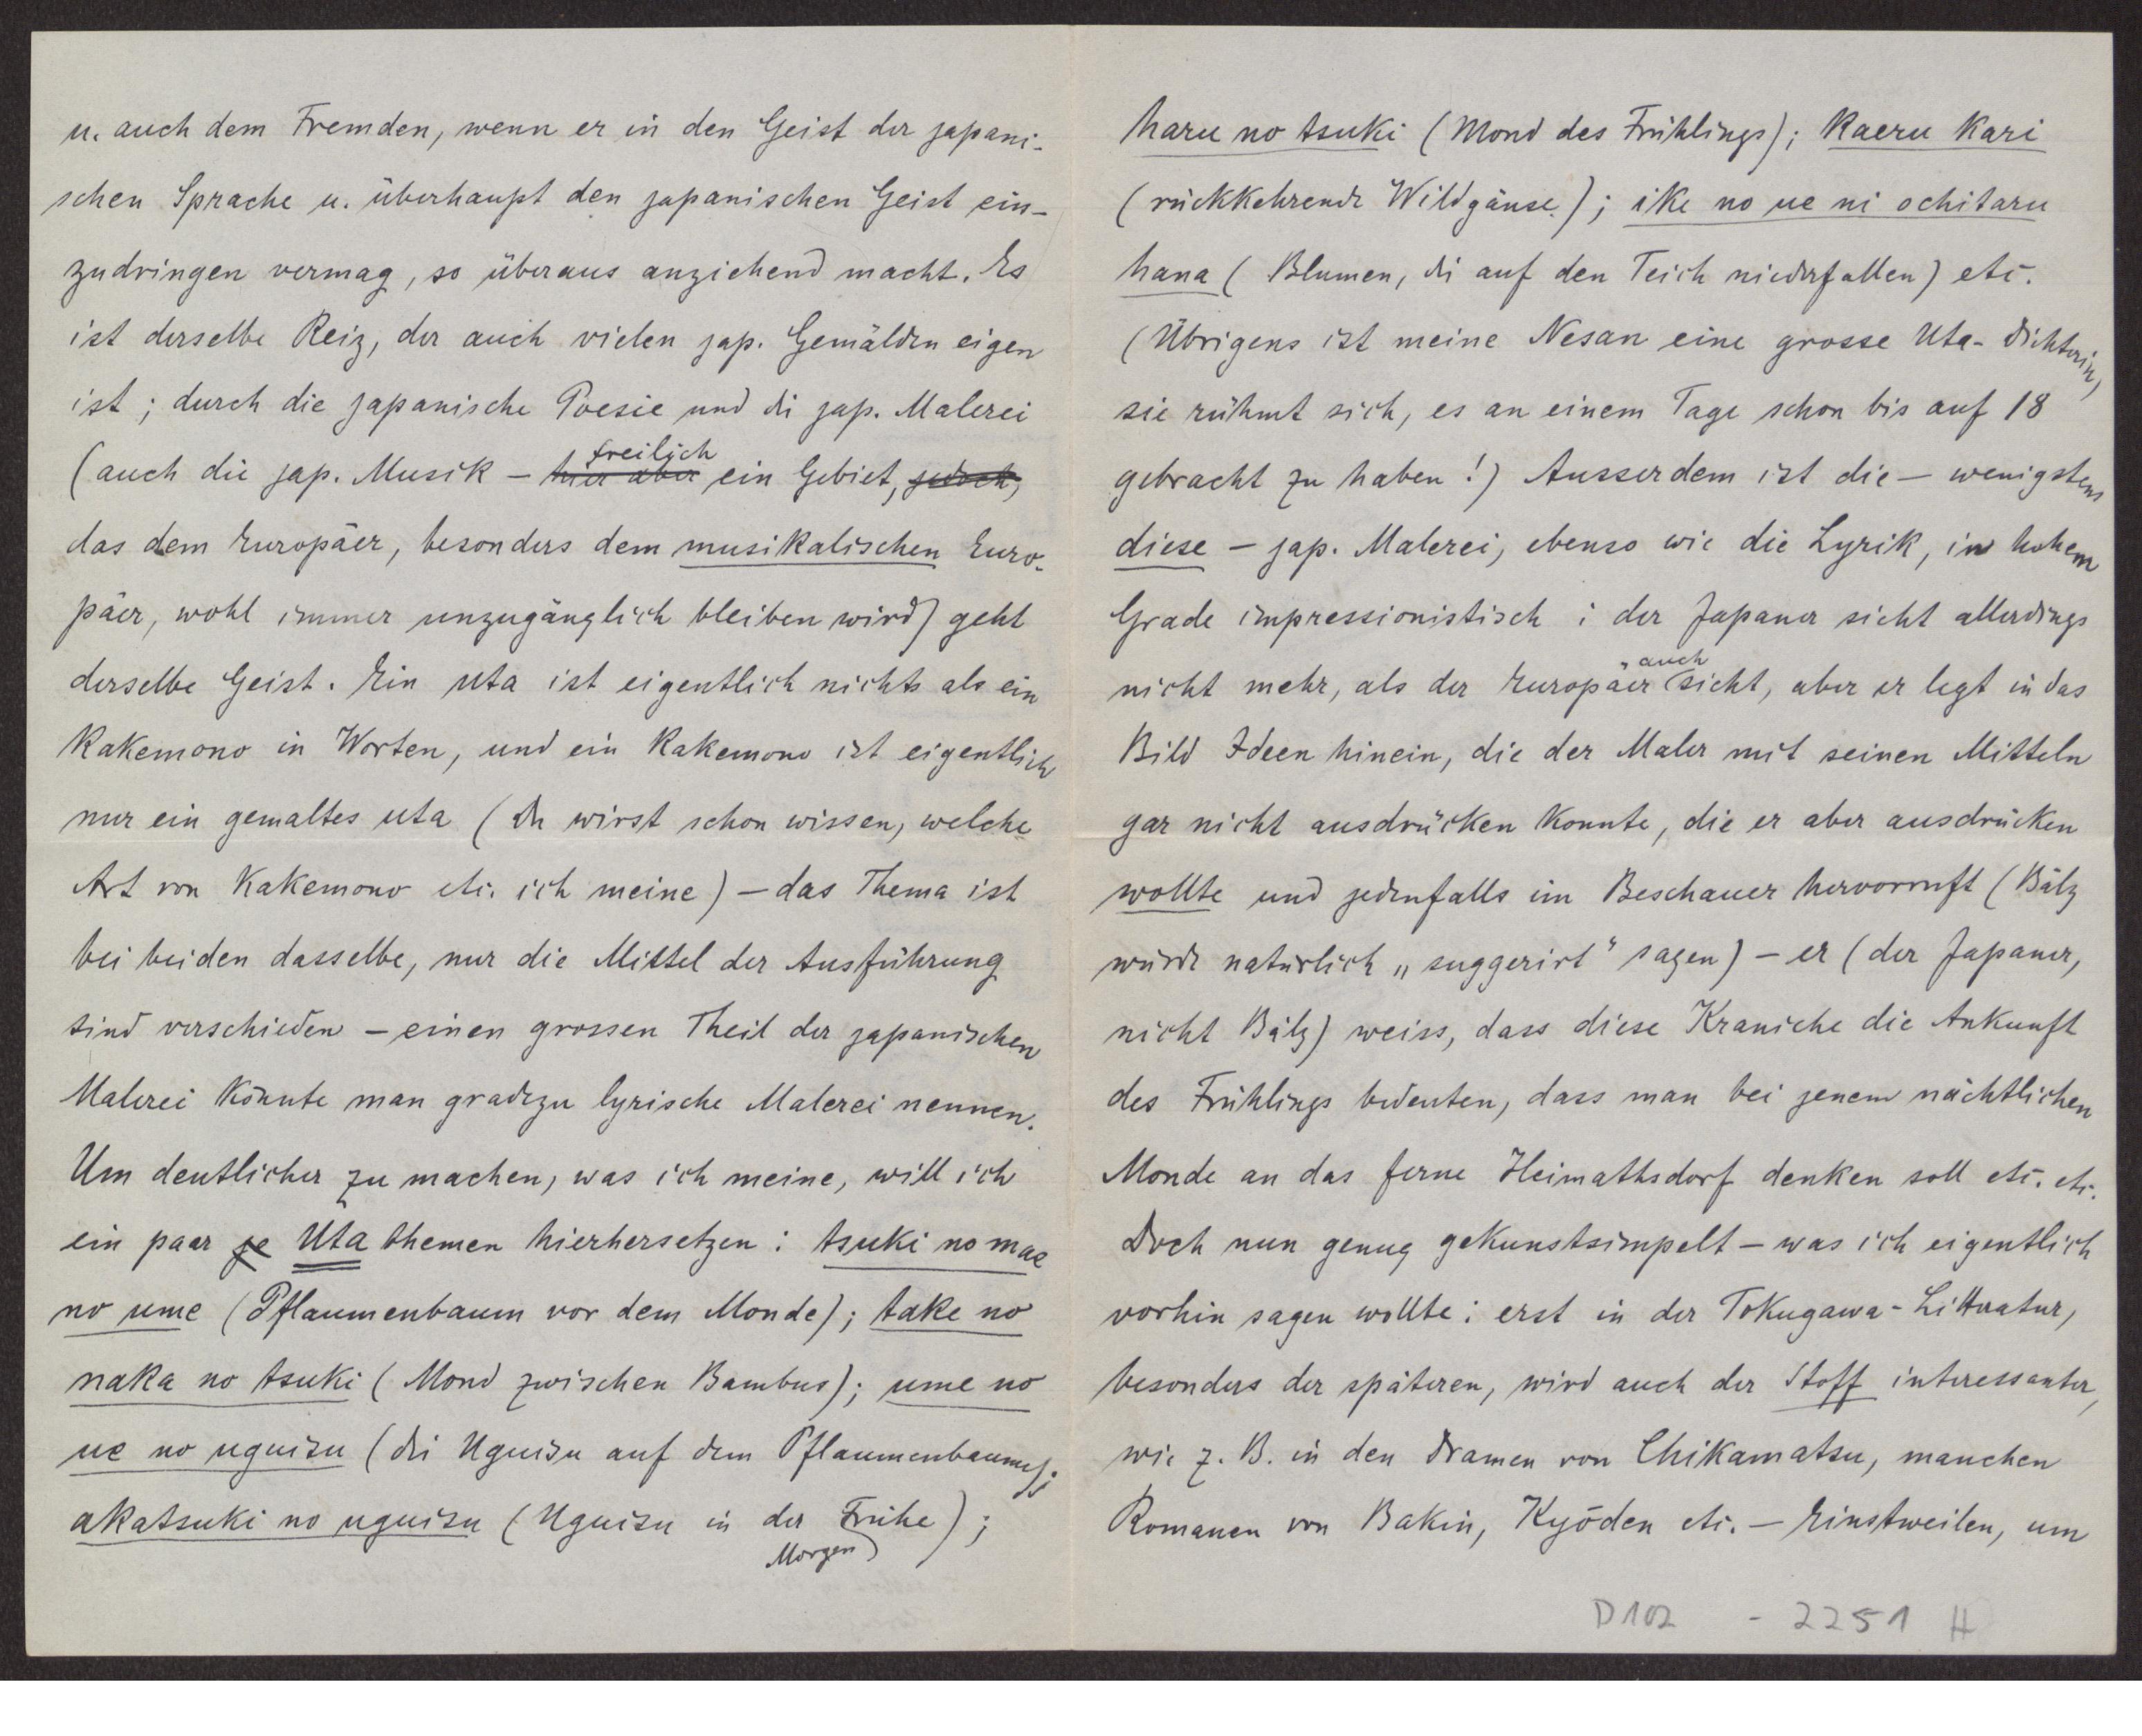 u. auch dem Fremden, wenn er in den Geist der japani-
schen Sprache u. überhaupt den japanischen Geist ein-
zudringen vermag, so überaus anziehend macht. Es
ist derselbe Reiz, der auch vielen jap. Gemälden eigen
ist; durch die japanische Poesie und di jap. Malerei
freilich
(auch die jap. Musik – hier aber ein Gebiet, jedoch,
das dem Europäer, besonders dem musikalischen Euro-
päer, wohl immer unzugänglich bleiben wird) geht
derselbe Geist. Ein uta ist eigentlich nichts als ein
Kakemono in Worten, und ein Kakemono ist eigentlich
nur ein gemaltes uta (Du wirst schon wissen, welche
Art von Kakemono etc. ich meine) – das Thema ist
bei beiden dasselbe, nur die Mittel der Ausführung
sind verschieden – einen grossen Theil der japanischen
Malerei könnte man gradezu lyrische Malerei nennen.
Um deutlicher zu machen, was ich meine, will ich
ein paar je Uta themen hierhersetzen: tsuki no mae
no ume (Pflaumenbaum vor dem Monde); take no
naka no tsuki (Mond zwischen Bambus); ume no
ue no uguisu (di Uguisu auf dem Pflaumenbaume);
akatsuki no uguisu (Uguisu in der Frühe);
Morgen
haru no tsuki (Mond des Frühlings); Kaeru Kari
(rückkehrende Wildgänse); ike no ue ni ochitaru
hana (Blumen, di auf den Teich niederfallen) etc.
(Übrigens ist meine Nesan eine grosse Uta-Dichterin,
sie rühmt sich, es an einem Tage schon bis auf 18
gebracht zu haben!) Ausserdem ist die – wenigstens
diese – jap. Malerei, ebenso wie die Lyrik, in hohem
Grade impressionistisch: der Japaner sieht allerdings
auch
nicht mehr, als der Europäer sieht, aber er legt in das
Bild Ideen hinein, die der Maler mit seinen Mitteln
gar nicht ausdrücken konnte, die er aber ausdrücken
wollte und jedenfalls im Beschauer hervorruft (Bälz
würde natürlich „suggerirt" sagen) – er (der Japaner,
nicht Bälz) weiss, dass diese Kraniche die Ankunft
des Frühlings bedeuten, dass man bei jenem nächtlichen
Monde an das ferne Heimathsdorf denken soll etc. etc.
Doch nun genug gekunstsimpelt – was ich eigentlich
vorhin sagen wollte: erst in der Tokugawa-Litteratur,
besonders der späteren, wird auch der Stoff interessanter,
wie z. B. in den Dramen von Chikamatsu, manchen
Romanen von Bakin, Kyōden etc. – Einstweilen, um
D 102 - 2251 H